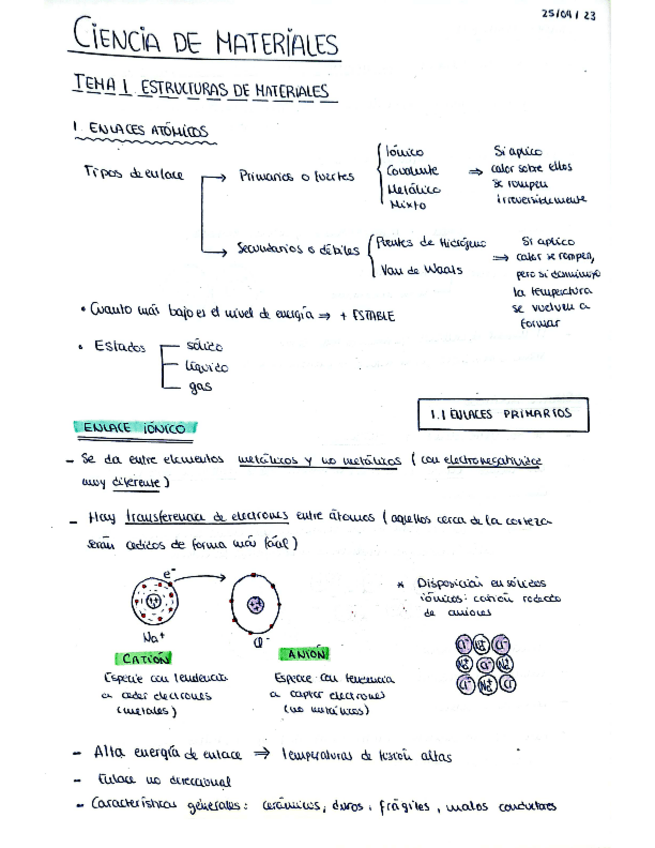 25/09/23
CIENCIA DE MATERIALES
TEMA 1 ESTRUCTURAS DE MATERIALES
1. ENLACES ATÓMICOS
Tipos de enlace
Primarios o fuertes
Iónico
Covalente
Metálico
Mixto
⇒ Si aplico
calor sobre ellos
se rompen
irreversiblemente
Secundarios o débiles
Puentes de Hidrógeno
Van de Waals
⇒ Si aplico
calor se rompen,
pero si disminuyo
la temperatura
se vuelven a
formar
• Cuanto más bajo es el nivel de energía ⇒ + ESTABLE
• Estados
sólido
líquido
gas
1.1 ENLACES PRIMARIOS
ENLACE IÓNICO
- Se da entre elementos metálicos y no metálicos (con electronegatividad
muy diferente)
- Hay transferencia de electrones entre átomos (aquellos cerca de la corteza
serán cedidos de forma más fácil)
e-
Na+
Cl-
* Disposición en sólidos
iónicos: catión rodeado
de aniones
Cl- Na+ Cl-
Na+ Cl- Na+
Cl- Na+ Cl
CATIÓN
Especie con tendencia
a ceder electrones
(metales)
ANIÓN
Especie con tendencia
a captar electrones
(no metálicos)
- Alta energía de enlace ⇒ temperaturas de fusión altas
- Enlace no direccional
- Características génerales: cerámicos, duros, frágiles, malos conductores